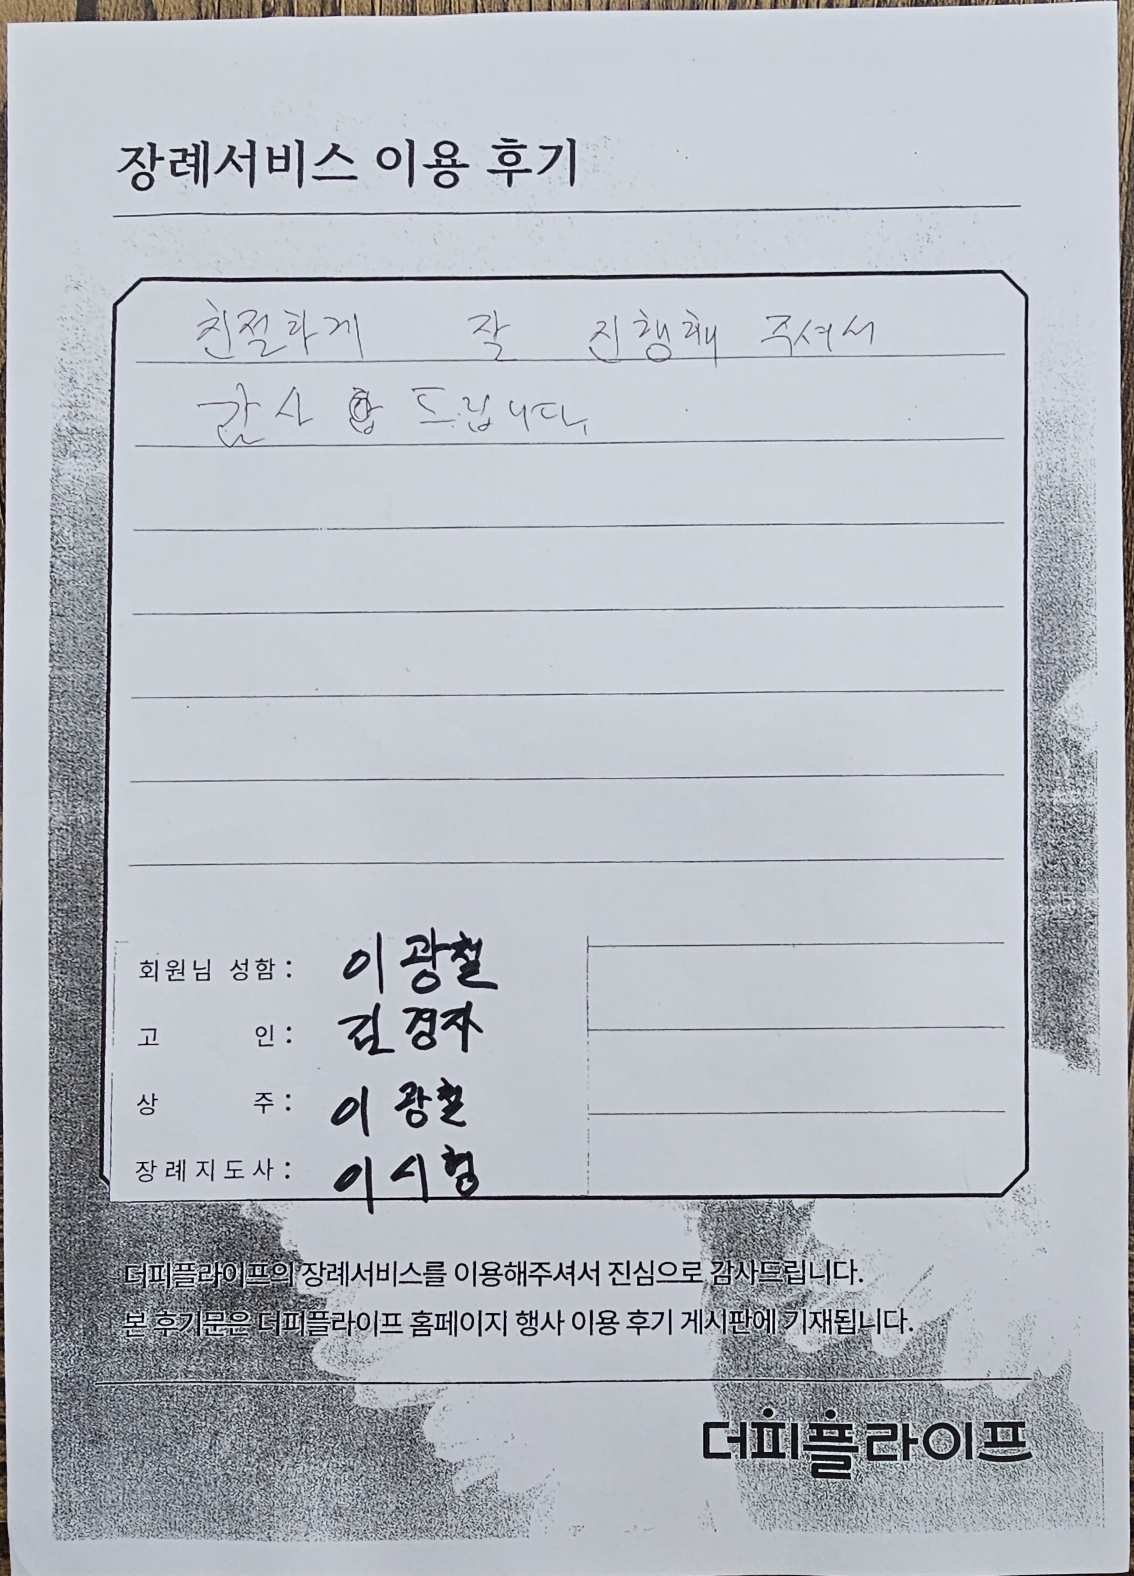 장례서비스 이용 후기
친절하게 잘 진행해 주셔서
감사 드립니다.
회원님 성함 : 이광철
고 인 : 김경자
상 주 : 이광철
장례지도사 : 이시형
더피플라이프의 장례서비스를 이용해주셔서 진심으로 감사드립니다.
본 후기문은 더피플라이프 홈페이지 행사 이용 후기 게시판에 기재됩니다.
더피플라이프